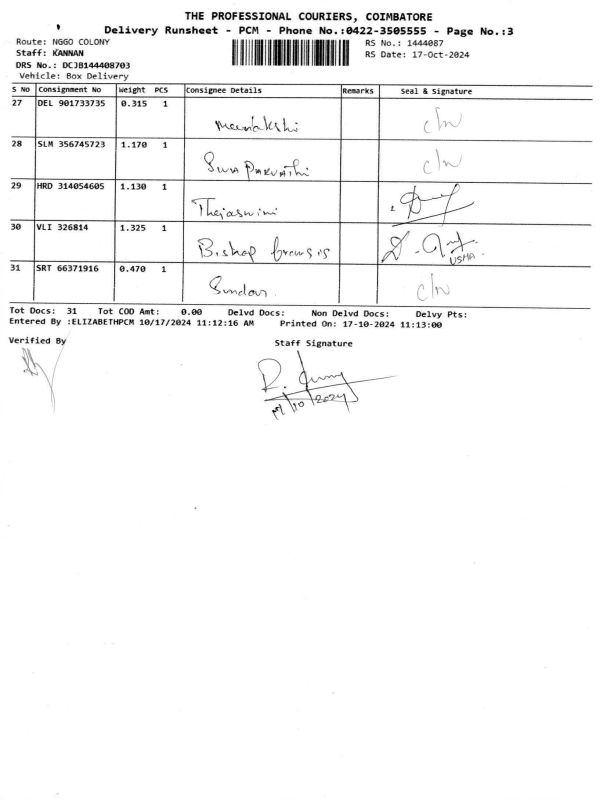 THE PROFESSIONAL COURIERS, COIMBATORE
Delivery Runsheet - PCM - Phone No.:0422-3505555 - Page No.:3
Route: NGGO COLONY
RS No.: 1444087
Staff: KANNAN
RS Date: 17-Oct-2024
DRS No.: DCJB144408703
Vehicle: Box Delivery
S No Consignment No Weight PCS Consignee Details Remarks Seal & Signature
27 DEL 901733735 0.315 1 Meenakshi c/n
28 SLM 356745723 1.170 1 Siva Parvathi c/n
29 HRD 314054605 1.130 1 Thejaswini
30 VLI 326814 1.325 1 Bishop fransis USHA.
31 SRT 66371916 0.470 1 Sundar. c/n
Tot Docs: 31 Tot COD Amt: 0.00 Delvd Docs: Non Delvd Docs: Delvy Pts:
Entered By :ELIZABETHPCM 10/17/2024 11:12:16 AM Printed On: 17-10-2024 11:13:00
Verified By Staff Signature
17/10/2024